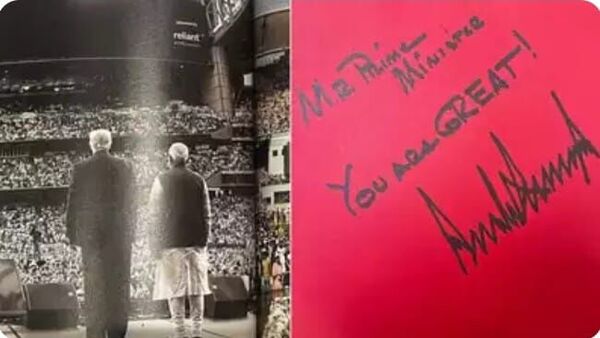 reliant
MR PRIME
MINISTER
YOU ARE GREAT!